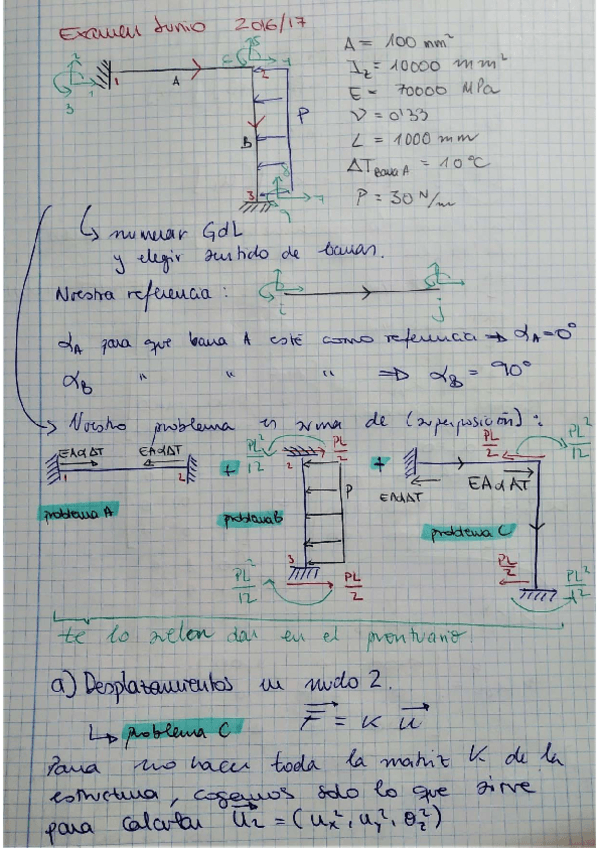 Examen Junio 2016/17
A = 100 mm²
I_z = 10000 mm²
E = 70000 MPa
ν = 0'33
L = 1000 mm
ΔT Barra A = 10ºC
P = 30 N/m
2
3
1
1
A
2
P
B
3
8
7
9
↳ numerar GdL
y elegir sentido de barras.
Nuestra referencia :
i
j
α_A para que barra A esté como referencia ⇒ α_A = 0°
α_B " " " ⇒ α_B = 90°
→ Nuestro problema es suma de (superposición) :
EAαΔT EAαΔT
1 2
problema A
+
PL²/12 PL/2
2
P
problema B
3
PL²/12 PL/2
+
PL/2 PL²/12
EAαΔT EAαΔT
problema C
PL/2 PL²/12
te lo suelen dar en el prontuario.
a) Desplazamientos en nudo 2.
↳ problema C F = K u
Para no hacer toda la matriz K de la
estructura, cogemos solo lo que sirve
para calcular u₂ = (u_x², u_y², θ_z²)